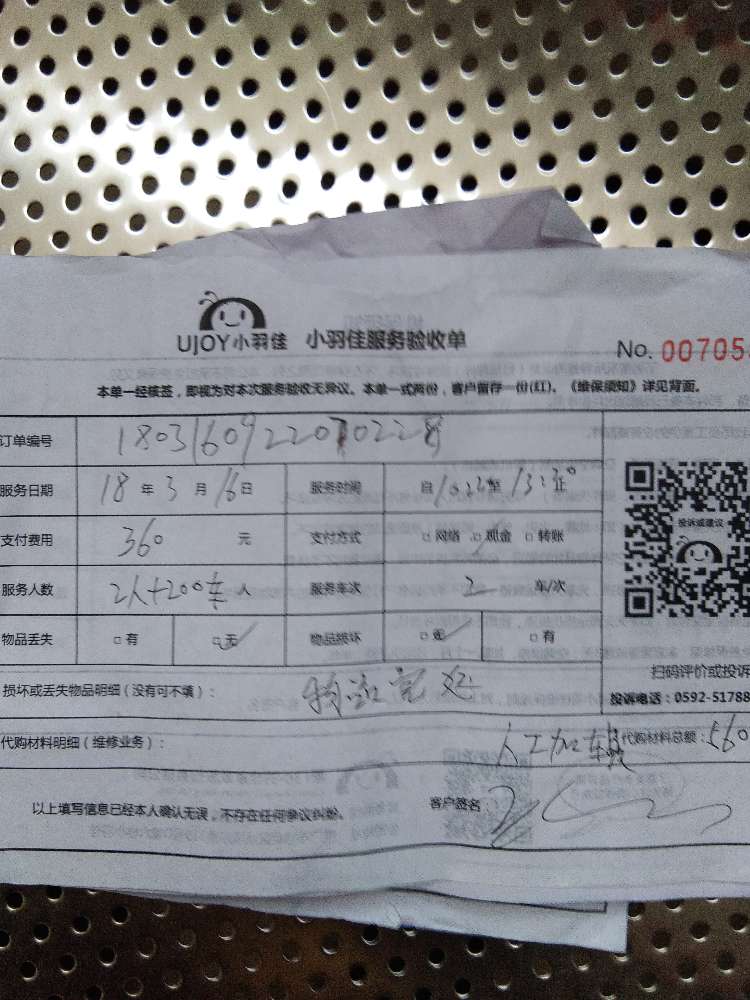 UJOY小羽佳 小羽佳服务验收单
No. 00705
本单一经核签，即视为对本次服务验收无异议。本单一式两份，客户留存一份(红)。《维保须知》详见背面。
订单编号 180316092207022
服务日期 18 年 3 月 16 日 服务时间 自 10:22 至 13:30 止
支付费用 360 元 支付方式 □网络 □现金 □转账
服务人数 2人+200车 人 服务车次 2 车/次
投诉或建议
物品丢失 □有 □无 物品损坏 □无 □有
扫码评价或投诉
损坏或丢失物品明细（没有可不填）：
投诉电话：0592-51788
代购材料明细（维修业务）： 人工加车 代购材料总额：560
以上填写信息已经本人确认无误，不存在任何争议纠纷。 客户签名